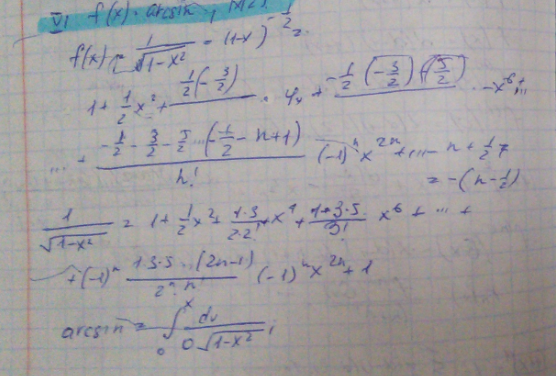 VI f(x) = arcsin
f(x) = 1/√(1-x²) = (1-x)^(-1/2) =
1 + 1/2 x² + 1/2(-3/2)/ . 4x + -1/2(-3/2)(5/2)/ -x⁶+...
... + (-1/2 - 3/2 - 5/2 ... (-1/2 - n+1))/n! (-1)ⁿ x²ⁿ + ... - n + 1/2
= -(n-1/2)
1/√(1-x²) = 1 + 1/2 x² + 1·3/2·2² x⁴ + 1+3·5/3! x⁶ + ... +
+(-1)ⁿ 1·3·5...(2n-1)/2ⁿ·n (-1)ⁿ x²ⁿ + 1
arcsin = ∫₀ˣ dv/0√(1-x²) ;